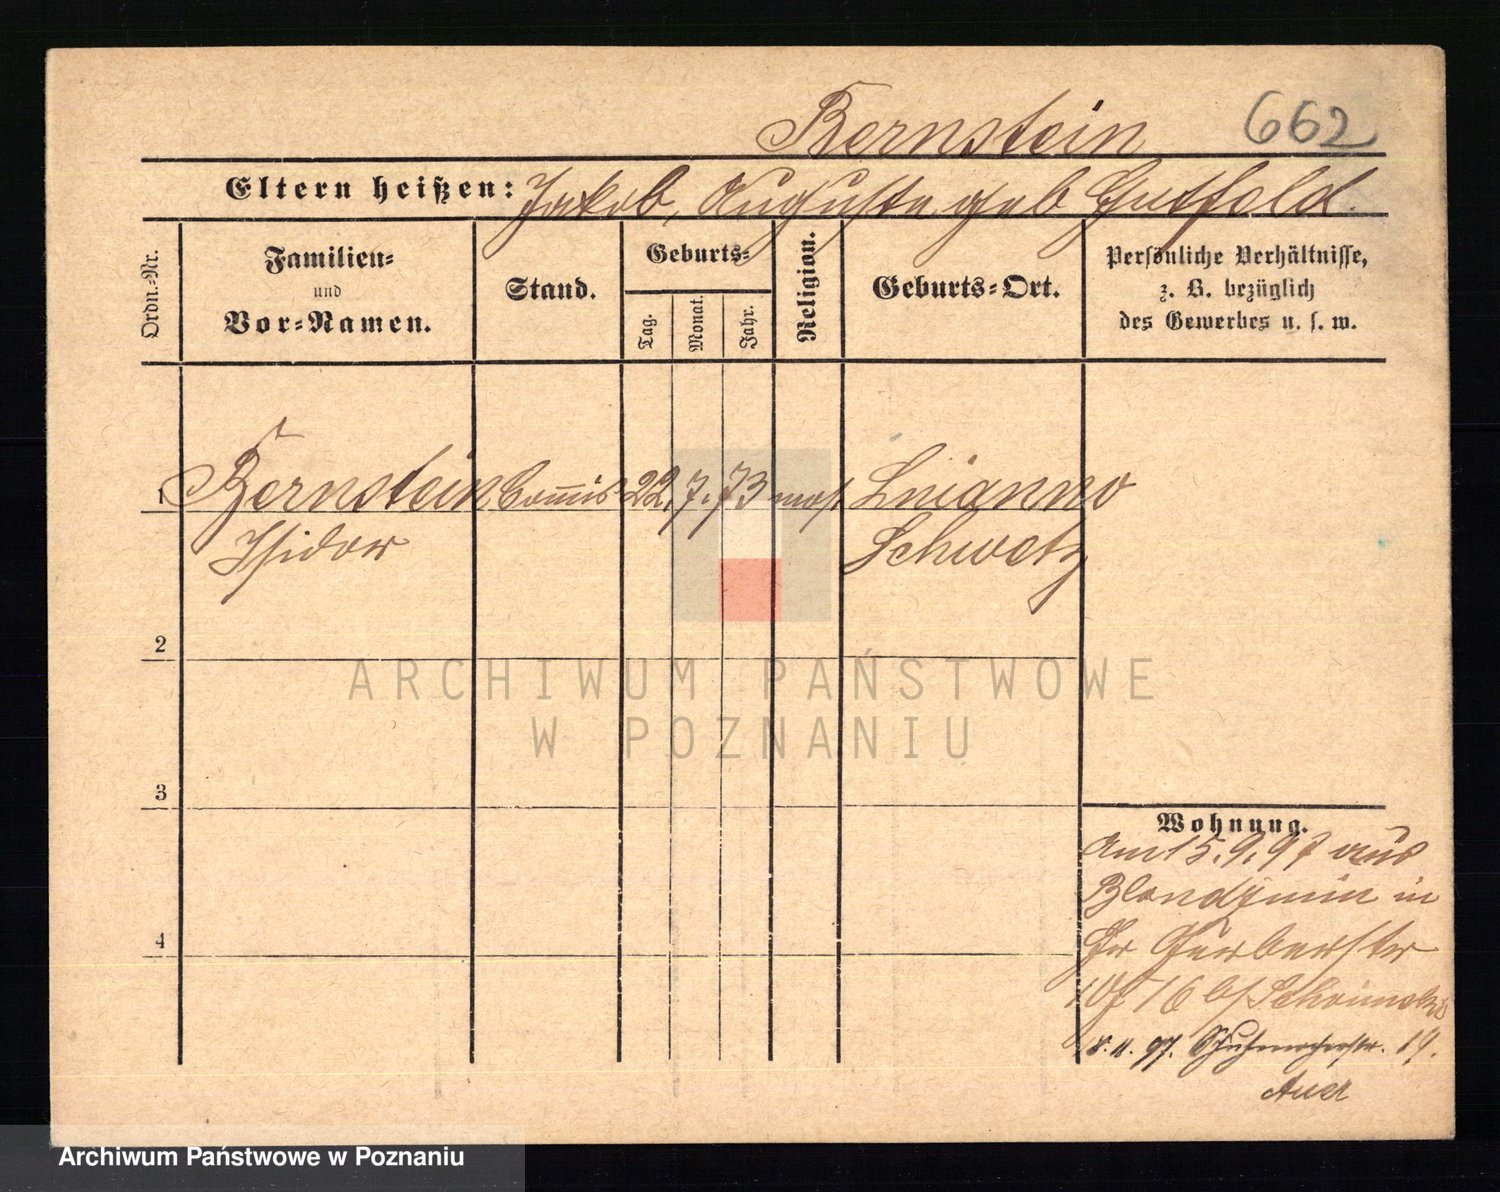 Bernstein 662
Eltern heißen: Jakob, Auguste geb Gutfeld.
Ordn.-Nr.
Familien-
und
Vor-Namen.
Stand.
Geburts-
Tag.
Monat.
Jahr.
Religion.
Geburts-Ort.
Persönliche Verhältnisse,
z. B. bezüglich
des Gewerbes u. s. w.
1 Bernstein Commis 22. 7. 73 mos. Lnianno
Isidor Schwetz
2
3
4
Wohnung.
Am 15.9.97 aus
Blondzmin in
Gr Gerberstr
16 b/
8. 11. 97. Schuhmacherstr. 19.
Auer
ARCHIWUM PAŃSTWOWE
W POZNANIU
Archiwum Państwowe w Poznaniu